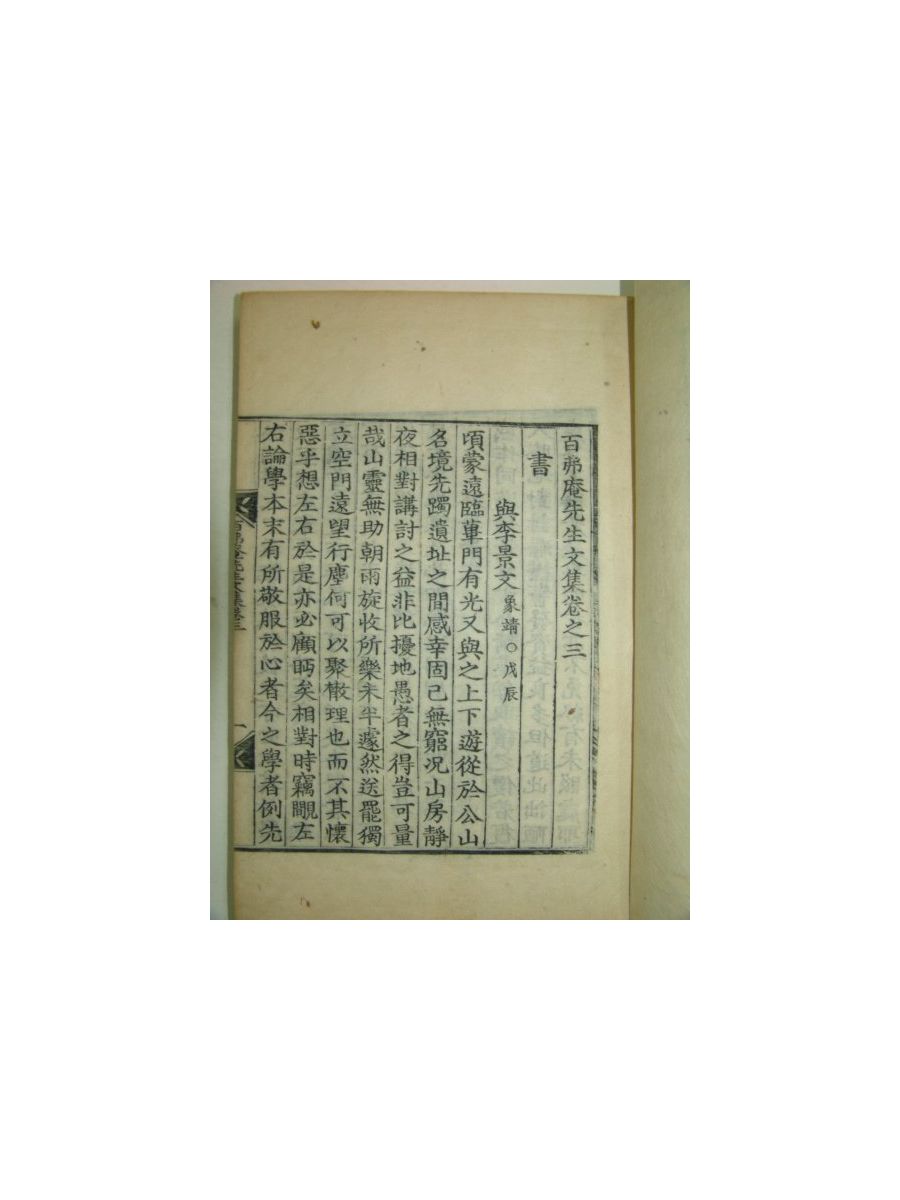 百弗庵先生文集卷之三
書
與李景文 象靖○戊辰
頃蒙遠臨蓽門有光又與之上下遊從於公山
名境先躅遺址之間感幸固已無窮况山房靜
夜相對講討之益非比擾地愚者之得豈可量
哉山靈無助朝雨旋收所樂未半遽然送罷獨
立空門遠望行塵何可以聚散理也而不其懷
惡乎想左右於是亦必顧眄矣相對時竊覸左
右論學本末有所敬服於心者今之學者例先
百弗庵先生文集卷三
一